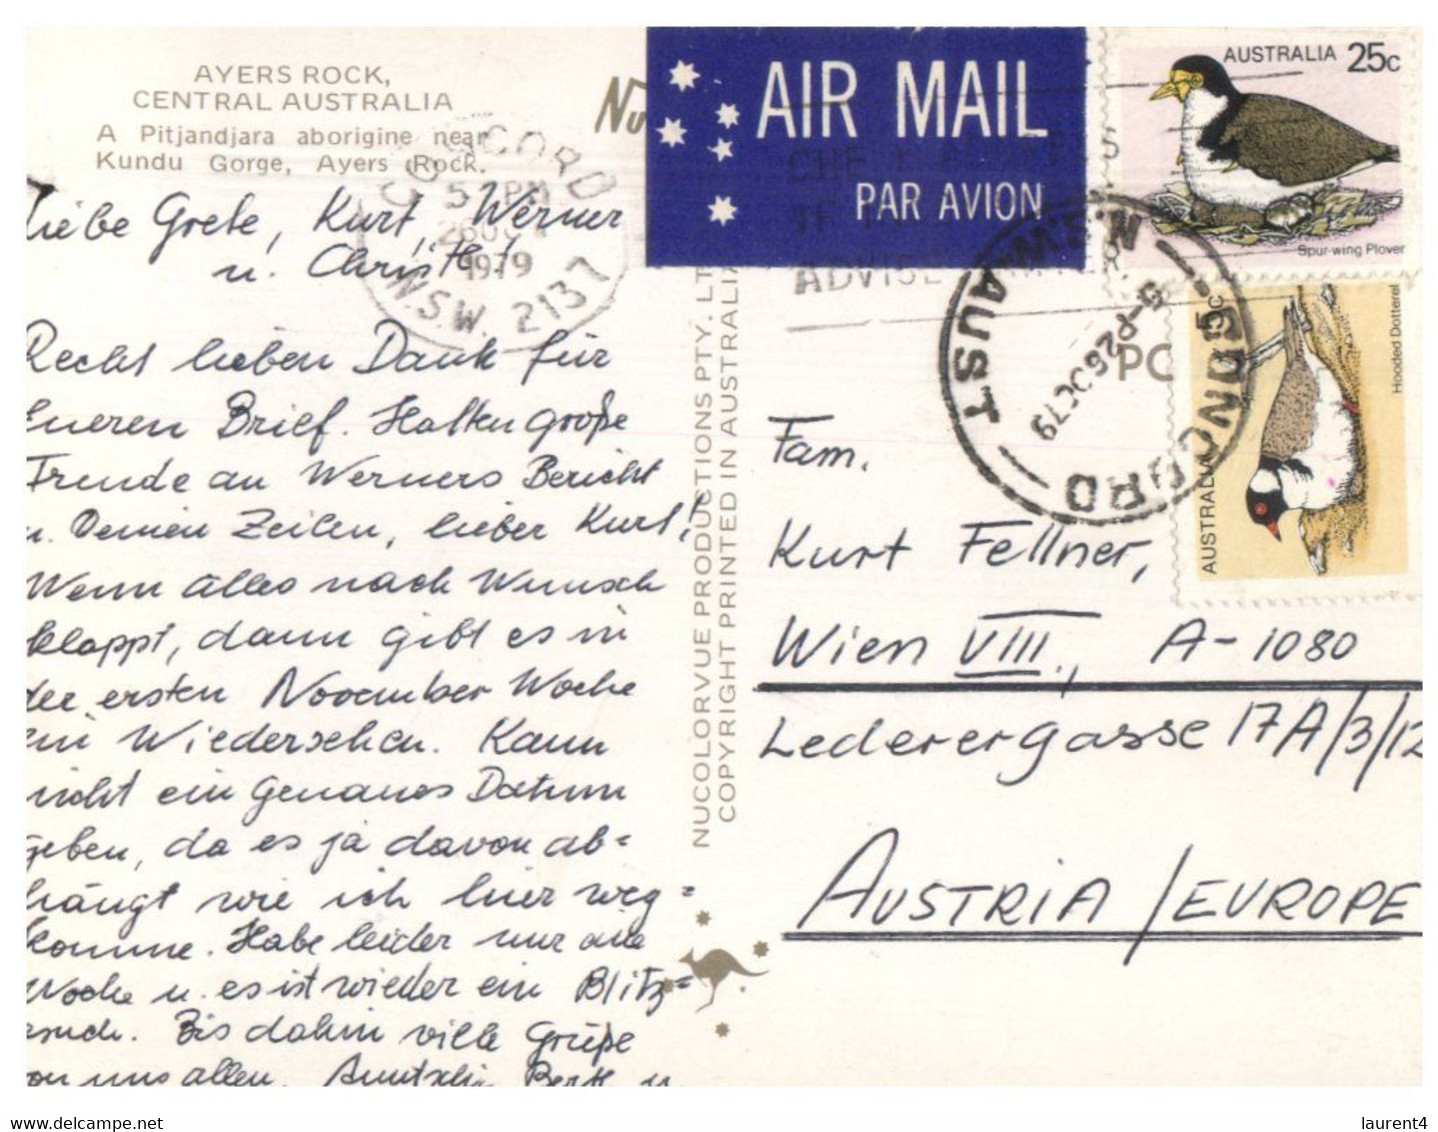 AYERS ROCK,
CENTRAL AUSTRALIA
A Pitjandjara aborigine near
Kundu Gorge, Ayers Rock.
Nu
AIR MAIL
PAR AVION
AUSTRALIA 25c
Spur-wing Plover
5c
Hooded Dotterel
AUSTRALIA
CONCORD
5 PM
26 OC
1979
N.S.W. 2137
ADVISE
CONCORD
N.S.W. AUST
5-P 26 OC 79
PC
Liebe Grete, Kurt, Werner
u. Christl!
Recht lieben Dank für
Eueren Brief. Hatten große
Freude an Werners Bericht
u. Deinen Zeilen, lieber Kurt!
Wenn alles nach Wunsch
klappt, dann gibt es in
der ersten November Woche
ein Wiedersehen. Kann
nicht ein genaues Datum
geben, da es ja davon ab=
hängt wie ich hier weg=
komme. Habe leider nur eine
Woche u. es ist wieder ein Blitz=
esuch. Bis dahin viele Grüße
von uns allen.
NUCOLORVUE PRODUCTIONS PTY. LT
COPYRIGHT PRINTED IN AUSTRALIA
Fam.
Kurt Fellner,
Wien VIII., A-1080
Lederergasse 17A/3/12
AUSTRIA/EUROPE
laurent4